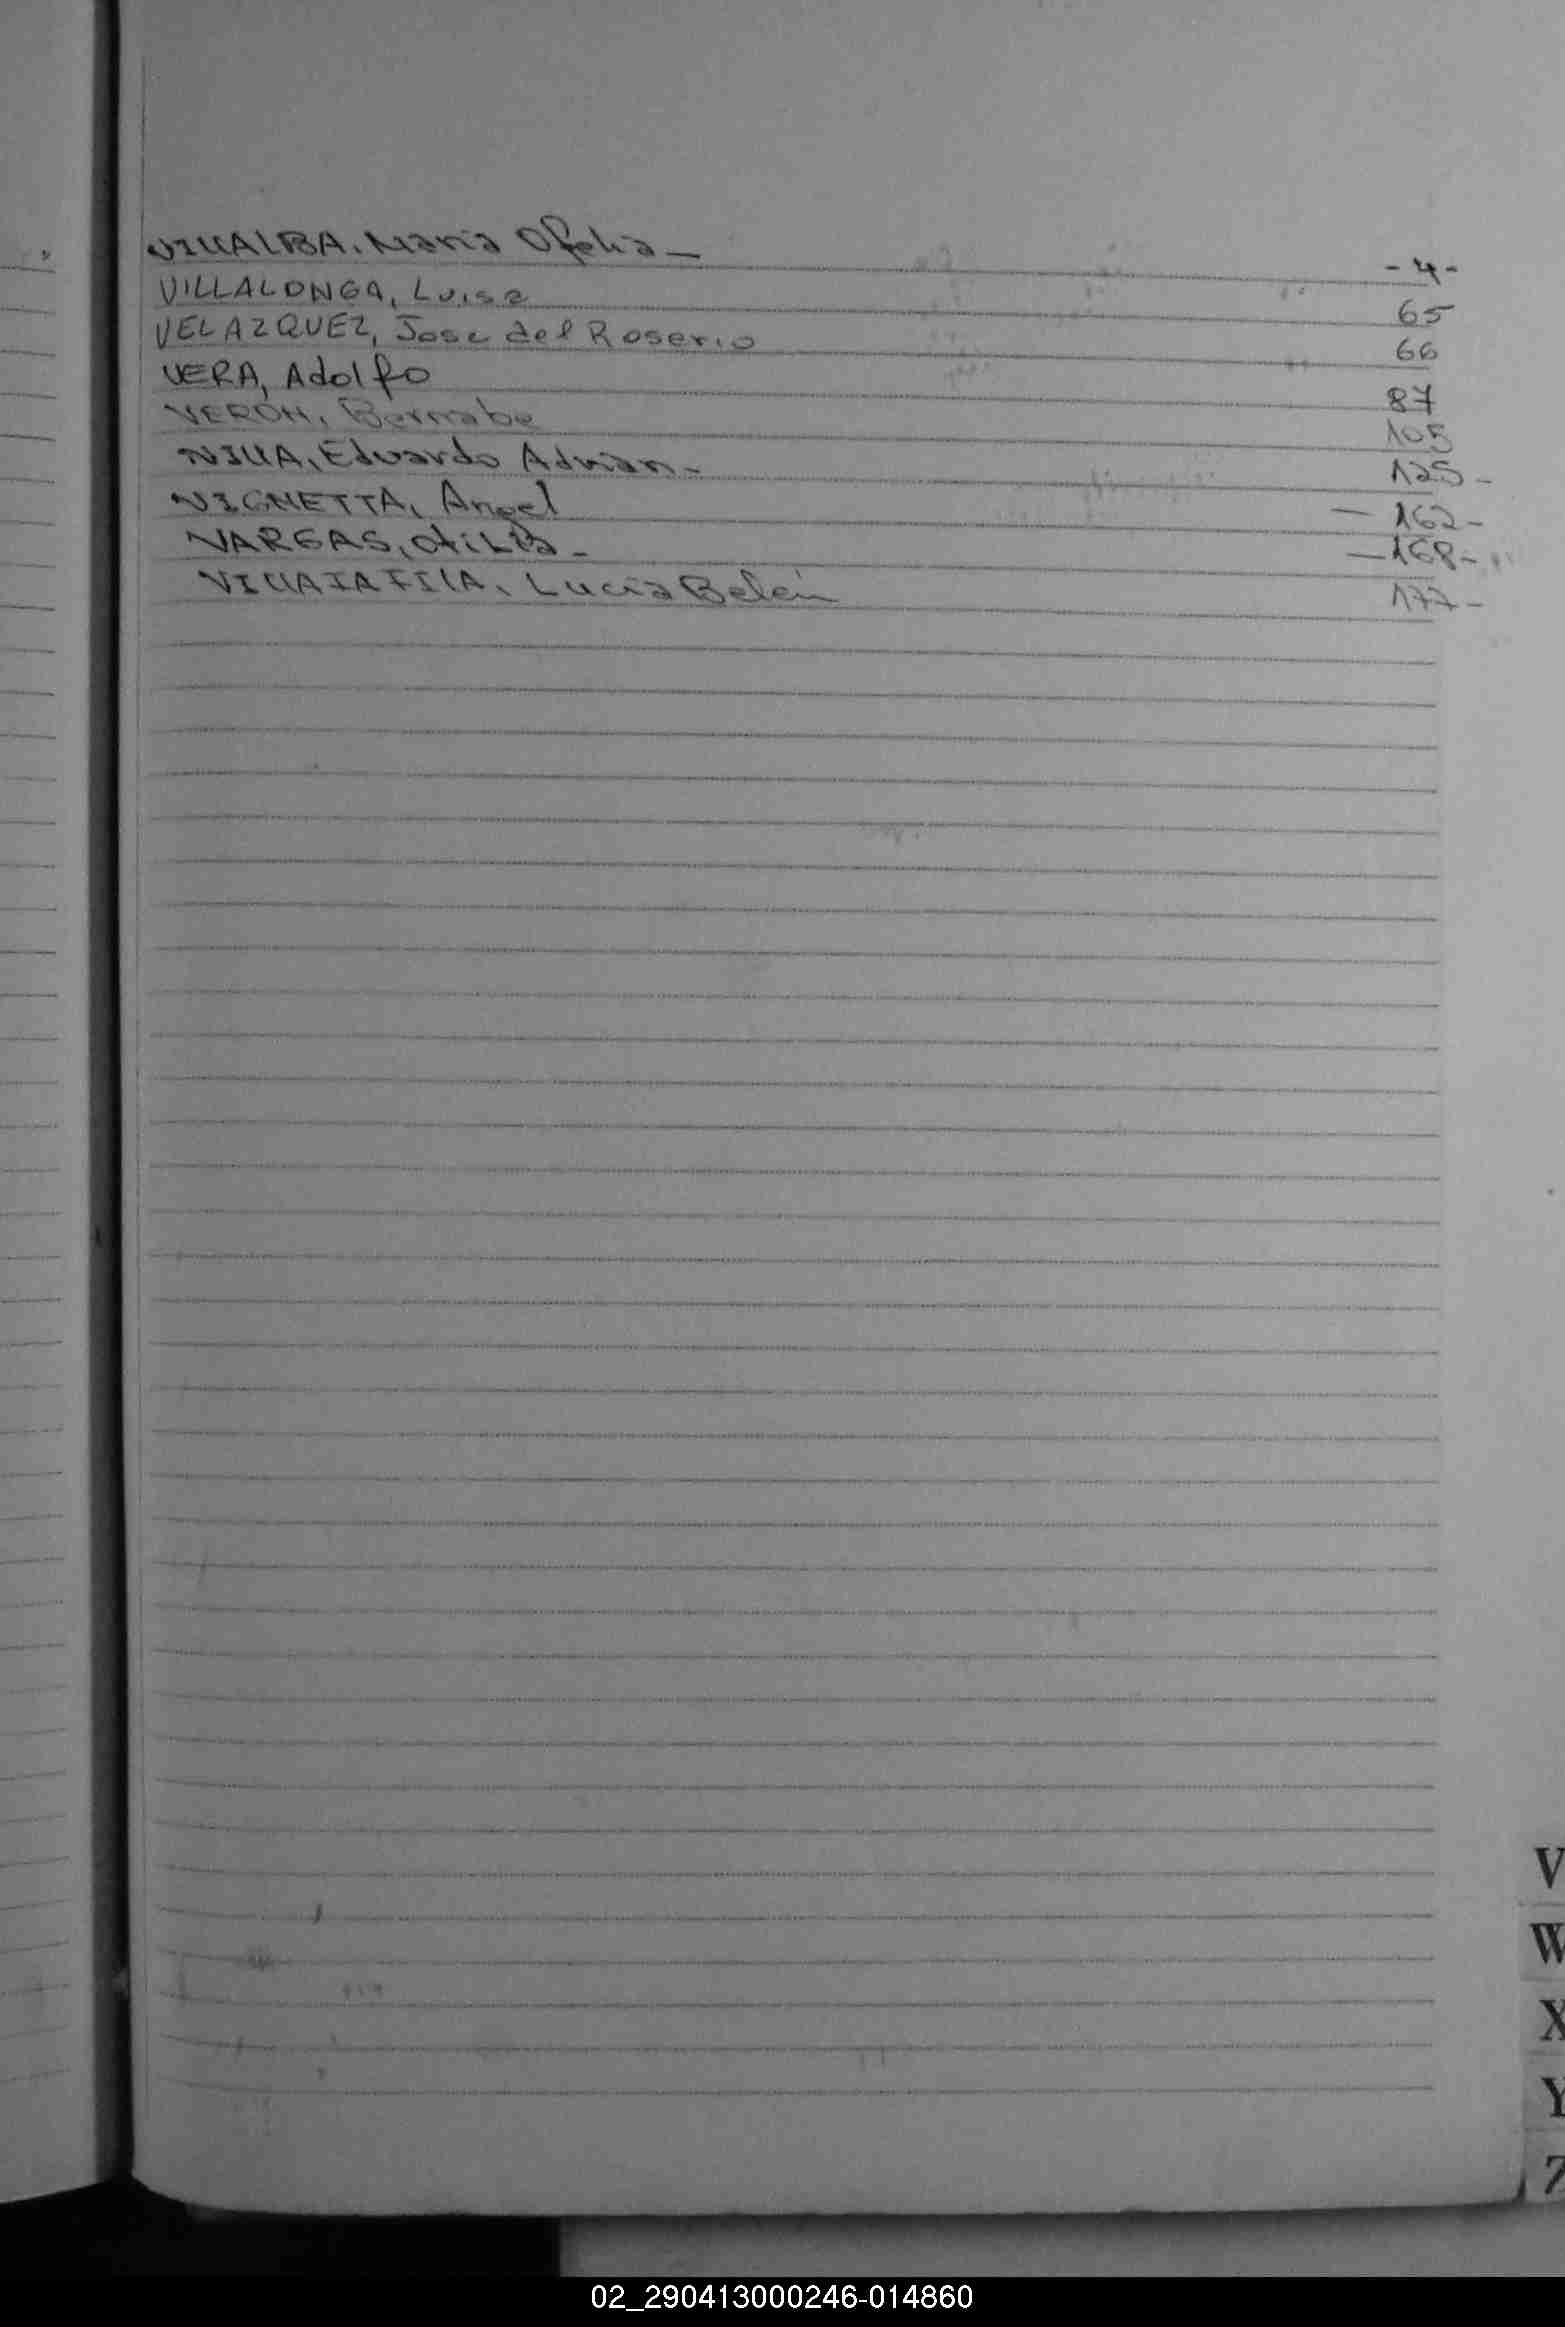 VILLALBA, Maria Ofelia - -4-
VILLALONGA, Luisa 65
VELAZQUEZ, Jose del Rosario 66
VERA, Adolfo 87
VERON, Bernabe 105
VILLA, Eduardo Adrian - 125-
VIGNETTA, Angel - 162-
VARGAS, Otilia - -168-
VILLAFAÑA, Lucía Belén 177-
V
W
X
Y
Z
02_290413000246-014860